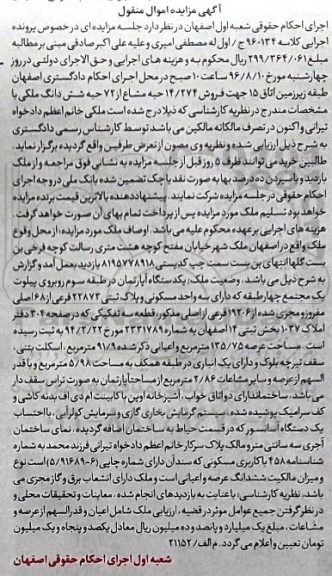 آگهی مزایده اموال منقول
اجرای احکام حقوقی شعبه اول اصفهان در نظر دارد جلسه مزایده ای در خصوص پرونده
اجرایی کلاسه ۹۶۰۱۳۴ ج/ اول له مصطفی امیری و علیه علی اکبر صادقی مبنی بر مطالبه
مبلغ ۲۹۹/۳۶۴/۰۶۱ ریال محکوم به و هزینه های اجرایی و حق الاجرای دولتی در روز
چهارشنبه مورخ ۹۶/۸/۱۰ ساعت ۱۰ صبح در محل اجرای احکام دادگستری اصفهان
طبقه زیرزمین اتاق ۱۵ جهت فروش ۱۴/۲۷۴ حبه مشاع از ۷۲ حبه شش دانگ ملکی با
مشخصات مندرج در نظریه کارشناسی که ذیلا درج شده است ملکی خانم اعظم دادخواه
تیرانی و اکنون در تصرف مالکانه مالکین می باشد توسط کارشناس رسمی دادگستری
به شرح ذیل ارزیابی شده و نظریه وی مصون از تعرض طرفین واقع گردیده برگزار نماید.
طالبین خرید می توانند ظرف ۵ روز قبل از جلسه مزایده به نشانی فوق مراجعه و از ملک
بازدید و با سپردن ده درصد بها به صورت نقد یا چک تضمین شده بانک ملی در وجه اجرای
احکام حقوقی در جلسه مزایده شرکت نمایند. پیشنهاددهنده بالاترین قیمت برنده مزایده
خواهد بود تسلیم ملک مورد مزایده پس از پرداخت تمام بهای آن صورت خواهد گرفت.
هزینه های اجرایی بر عهده محکوم علیه می باشد. اوصاف ملک مورد مزایده: از محل وقوع
ملک واقع در اصفهان ملک شهر خیابان مفتح کوچه هشت متری رسالت کوچه فرخی بن
بست گلها انتهای بن بست سمت چپ کدپستی ۸۱۹۵۷۷۸۹۱۸ بازدید بعمل آمد و گزارش
به شرح ذیل می باشد. وضعیت ملک: یکدستگاه آپارتمان در طبقه سوم روبروی پیلوت
یک مجتمع چهار طبقه که دارای سه واحد مسکونی و پلاک ثبتی ۲۲۸۷۳ فرعی از ۶۸ اصلی
مفروز و مجزی شده از ۱۹۲۰۶ فرعی از اصلی مذکور، قطعه سه تفکیکی که در صفحه ۳۰۴ دفتر
املاک ۱۰۳۷ بخش ثبتی ۱۴ اصفهان به شماره ۲۳۳۱۷۸۹ مورخ ۹۴/۲/۲۲ به ثبت رسیده
است. مساحت عرصه ۱۳۵/۷۵ مترمربع و اعیانی ذکر شده ۹۱/۹ مترمربع. اسکلت بتنی،
سقف تیرچه بلوک و دارای یک انباری در طبقه همکف به مساحت ۵/۹۸ مترمربع و با قدر
السهم از عرصه و سایر مشاعات ۲/۸۶ مترمربع از مساحت آپارتمان به صورت تراس سقف دار
می باشد، ساختمان دارای دو اتاق خواب، آشپزخانه اوپن با کابینت ام دی اف بدنه کاشی و
کف سرامیک پوشیده شده، سیستم گرمایش بخاری گازی و سرمایش کولر آبی، با احتساب
یک دستگاه آسانسور که در قسمت حیاط به ساختمان اضافه گردیده، نمای ساختمان
آجری سه سانتی متر و مالک پلاک سرکار خانم اعظم دادخواه تیرانی فرزند محمد به شماره
شناسنامه ۴۵۸ با کاربری مسکونی که سند آن دارای شماره چاپی (۵/۹۱۶۸۹۰۶) است نوع
و میزان مالکیت ششدانگ عرصه و اعیانی است و ملک دارای انشعاب برق و گاز مجزی می
باشد. نظریه کارشناسی: با عنایت به بازدیدهای انجام شده، معاینات و تحقیقات محلی و
در نظر گرفتن جمیع عوامل موثر در قضیه، ارزیابی ملک شامل اعیان و قدرالسهم از عرصه و
مشاعات، مبلغ یک میلیارد و پانصد و ده میلیون ریال معادل یکصد و پنجاه و یک میلیون
تومان تعیین و اعلام می گردد. م الف/ ۲۱۱۵۲
شعبه اول اجرای احکام حقوقی اصفهان